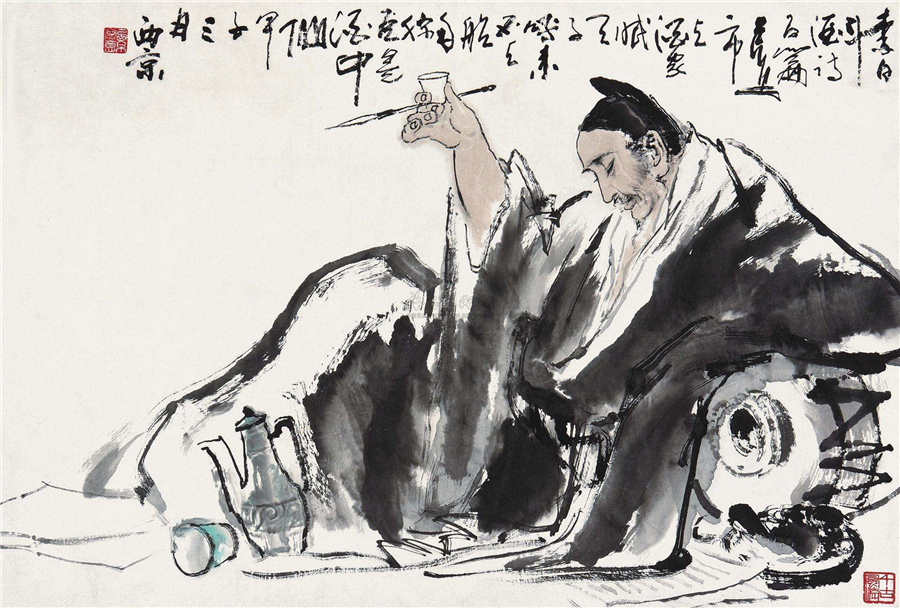 李白
斗
酒诗
百篇
長安
市
上
酒家
眠
天
子
呼来
不上
船
自
稱
臣是
酒中
仙
甲
子
三
月
西京